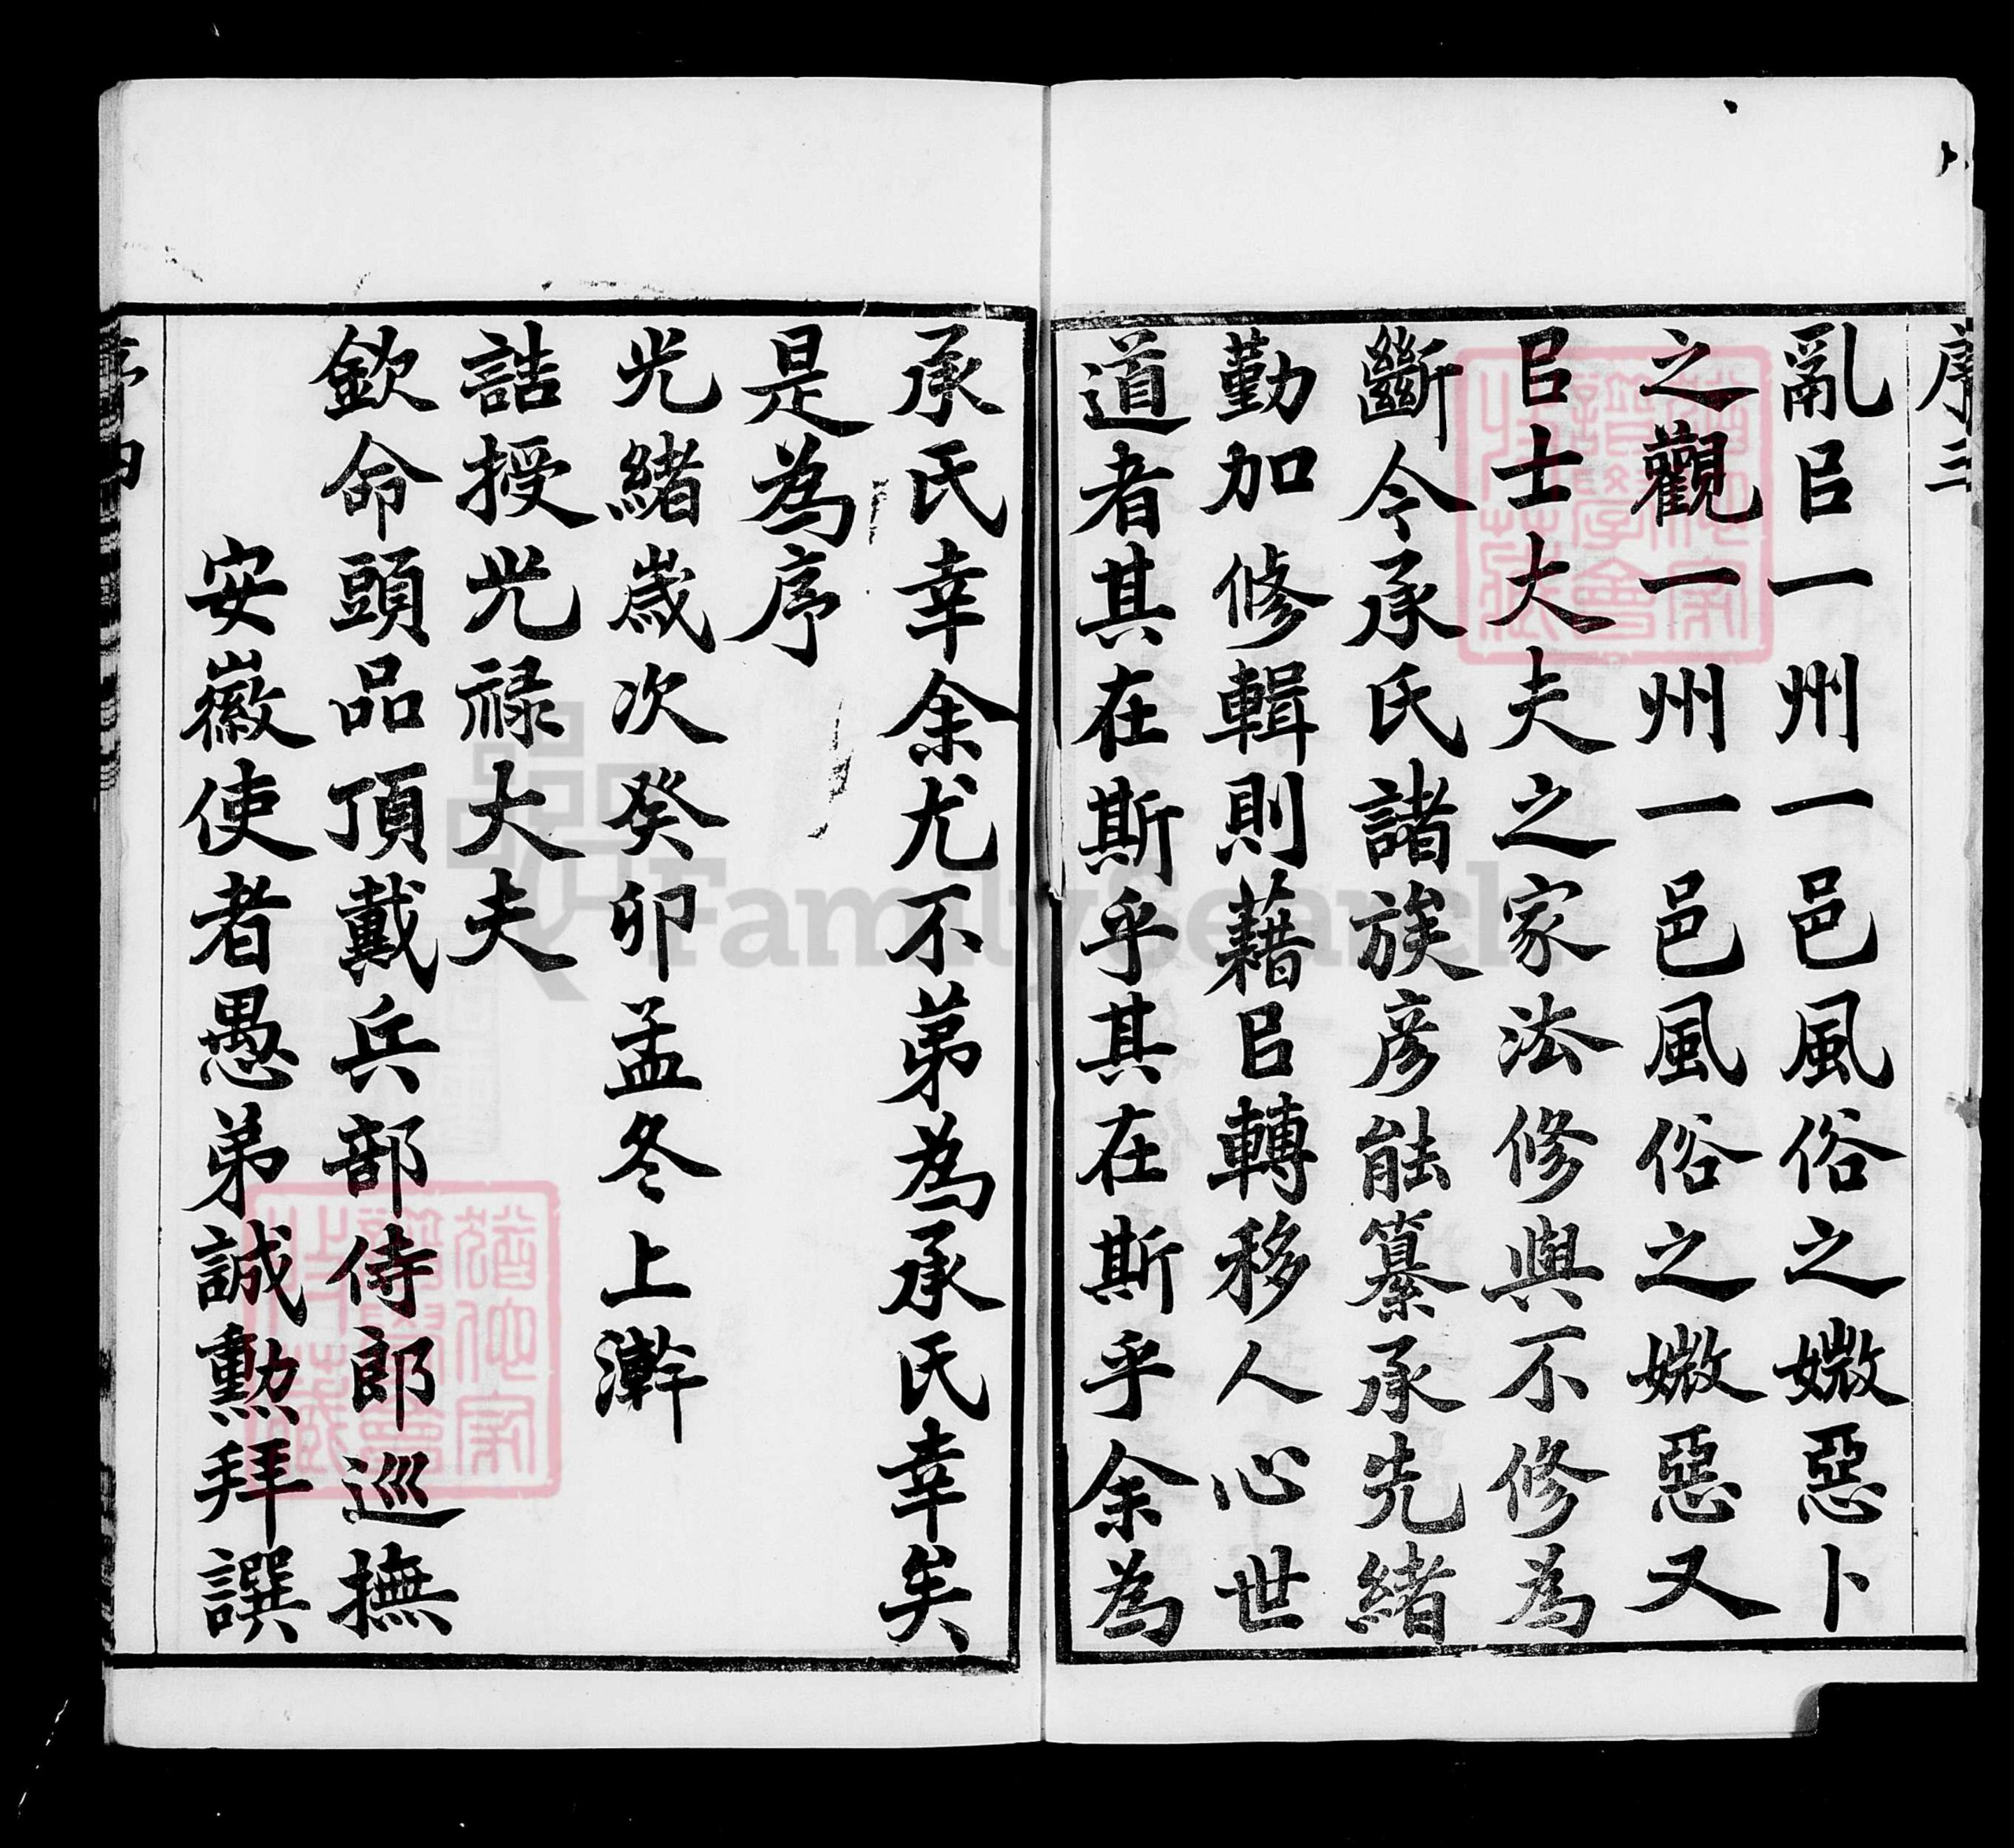 序三
亂㠯一州一邑風俗之媺惡卜
之觀一州一邑風俗之媺惡又
㠯士大夫之家法修與不修為
斷今承氏諸族彥能纂承先緒
勤加修輯則藉㠯轉移人心世
道者其在斯乎其在斯乎余為
承氏幸余尤不弟為承氏幸矣
是為序
光緒歲次癸卯孟冬上澣
誥授光祿大夫
欽命頭品頂戴兵部侍郎巡撫
安徽使者愚弟誠勳拜譔
序四
FamilySearch